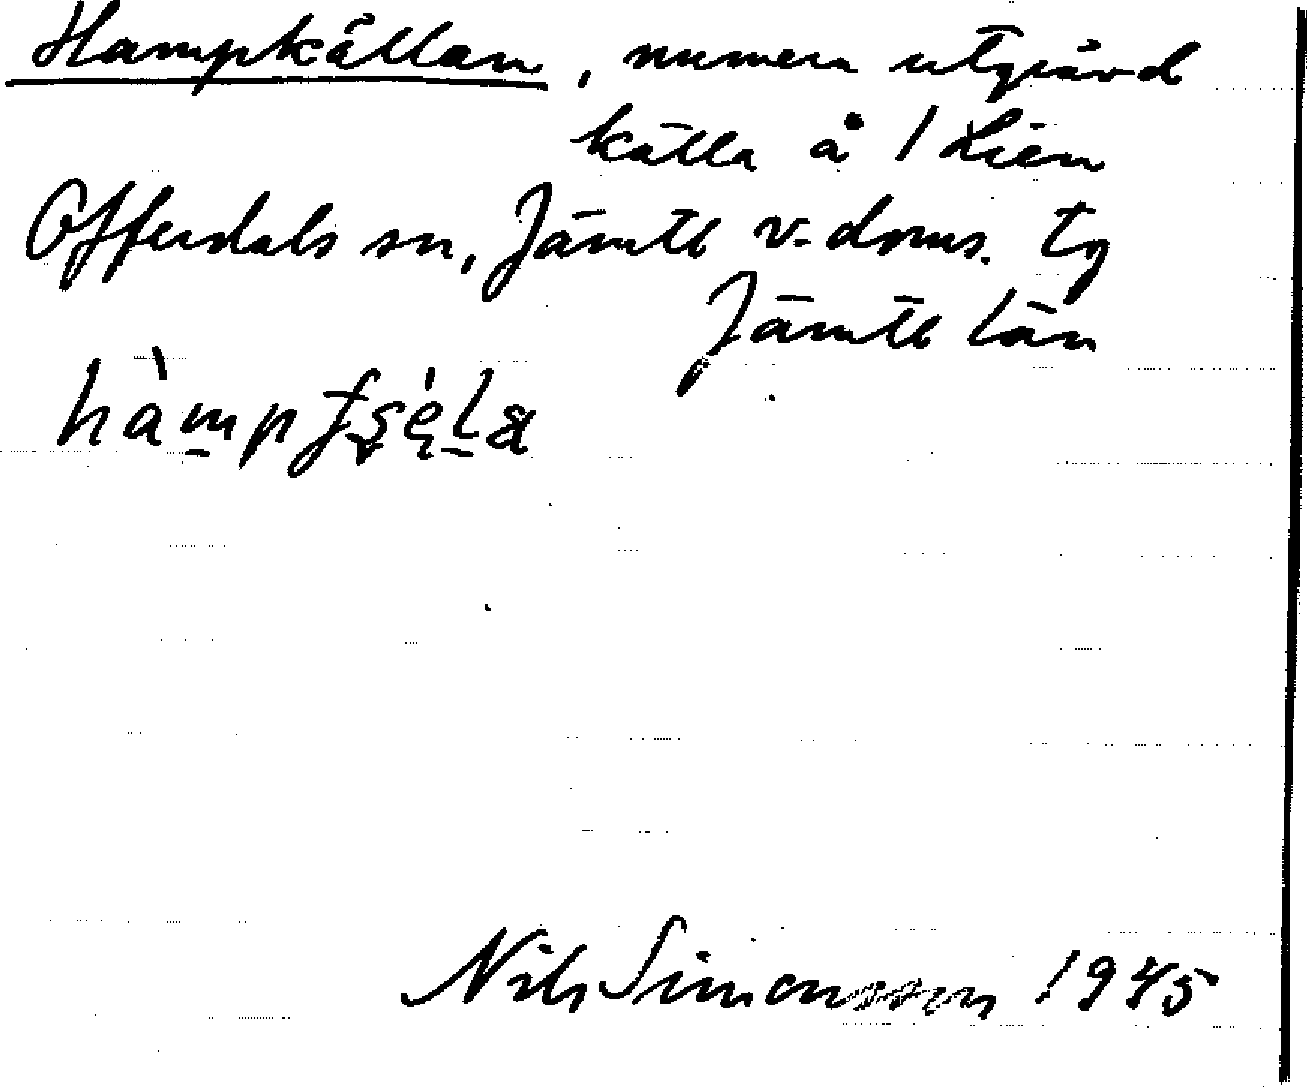 Hampkällan, numera utgrävd
källa å 1 Lien
Offerdals sn, Jämtl v. doms. tg
Jämtl län
Nils Simonsson 1945